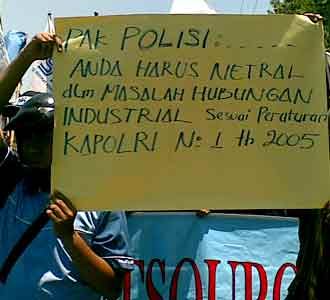 PAK POLISI : . . . . . .
ANDA HARUS NETRAL
dlm MASALAH HUBUNGAN
INDUSTRIAL Sesuai Peraturan
KAPOLRI No: 1 th 2005
ESOURC